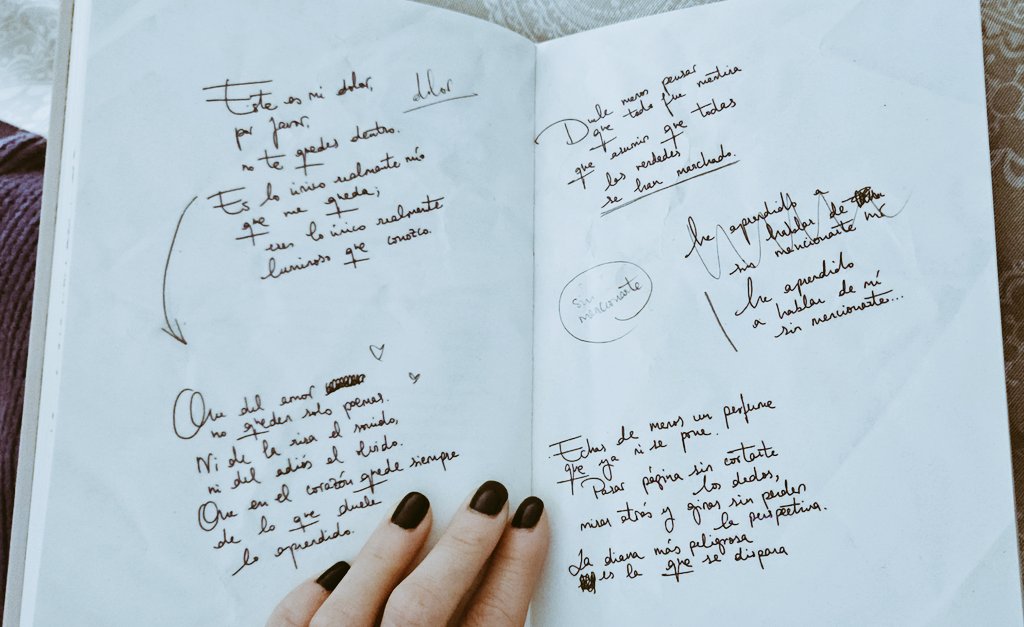 Este es mi dolor,
dolor
por favor,
no te quedes dentro.
Es lo único realmente mío
que me queda;
eres lo único realmente
luminoso que conozco.
Que del amor
no queden solo poemas.
Ni de la risa el sonido,
ni del adiós el olvido.
Que en el corazón quede siempre
de lo que duele
lo aprendido.
Duele menos pensar
que todo fue mentira
que asumir que todas
las verdades
se han marchado.
he aprendido a
hablar de
sin mencionarte mí
sin
mencionarte
he aprendido
a hablar de mí
sin mencionarte...
Echas de menos un perfume
que ya ni se pone.
Pasar página sin cortarte
los dedos,
mirar atrás y girar sin perder
la perspectiva.
La diana más peligrosa
es la que se dispara